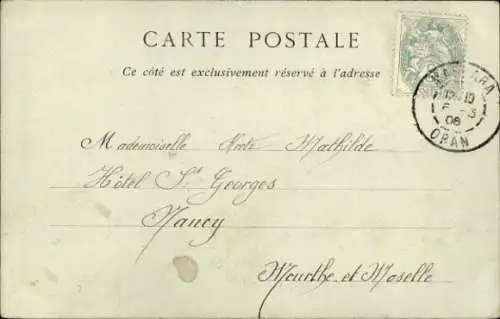 CARTE POSTALE
Ce côté est exclusivement réservé à l'adresse
MASCARA
6 -3
06
ORAN
Mademoiselle Mathilde
Hôtel St Georges
Nancy
Meurthe et Moselle